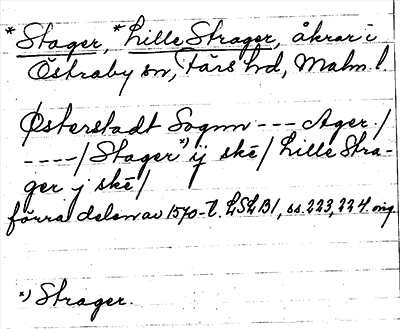 * Stager, * Lille Strager, åkrar i
Östraby sn, Färs hd, Malm. l.
Østerstadt Sognn --- Ager. /
----/ Stager *) ij skē / Lille Stra-
ger j skē /
förra delen av 1570-t. LSLB1, ss. 223, 224. orig.
*) Strager.